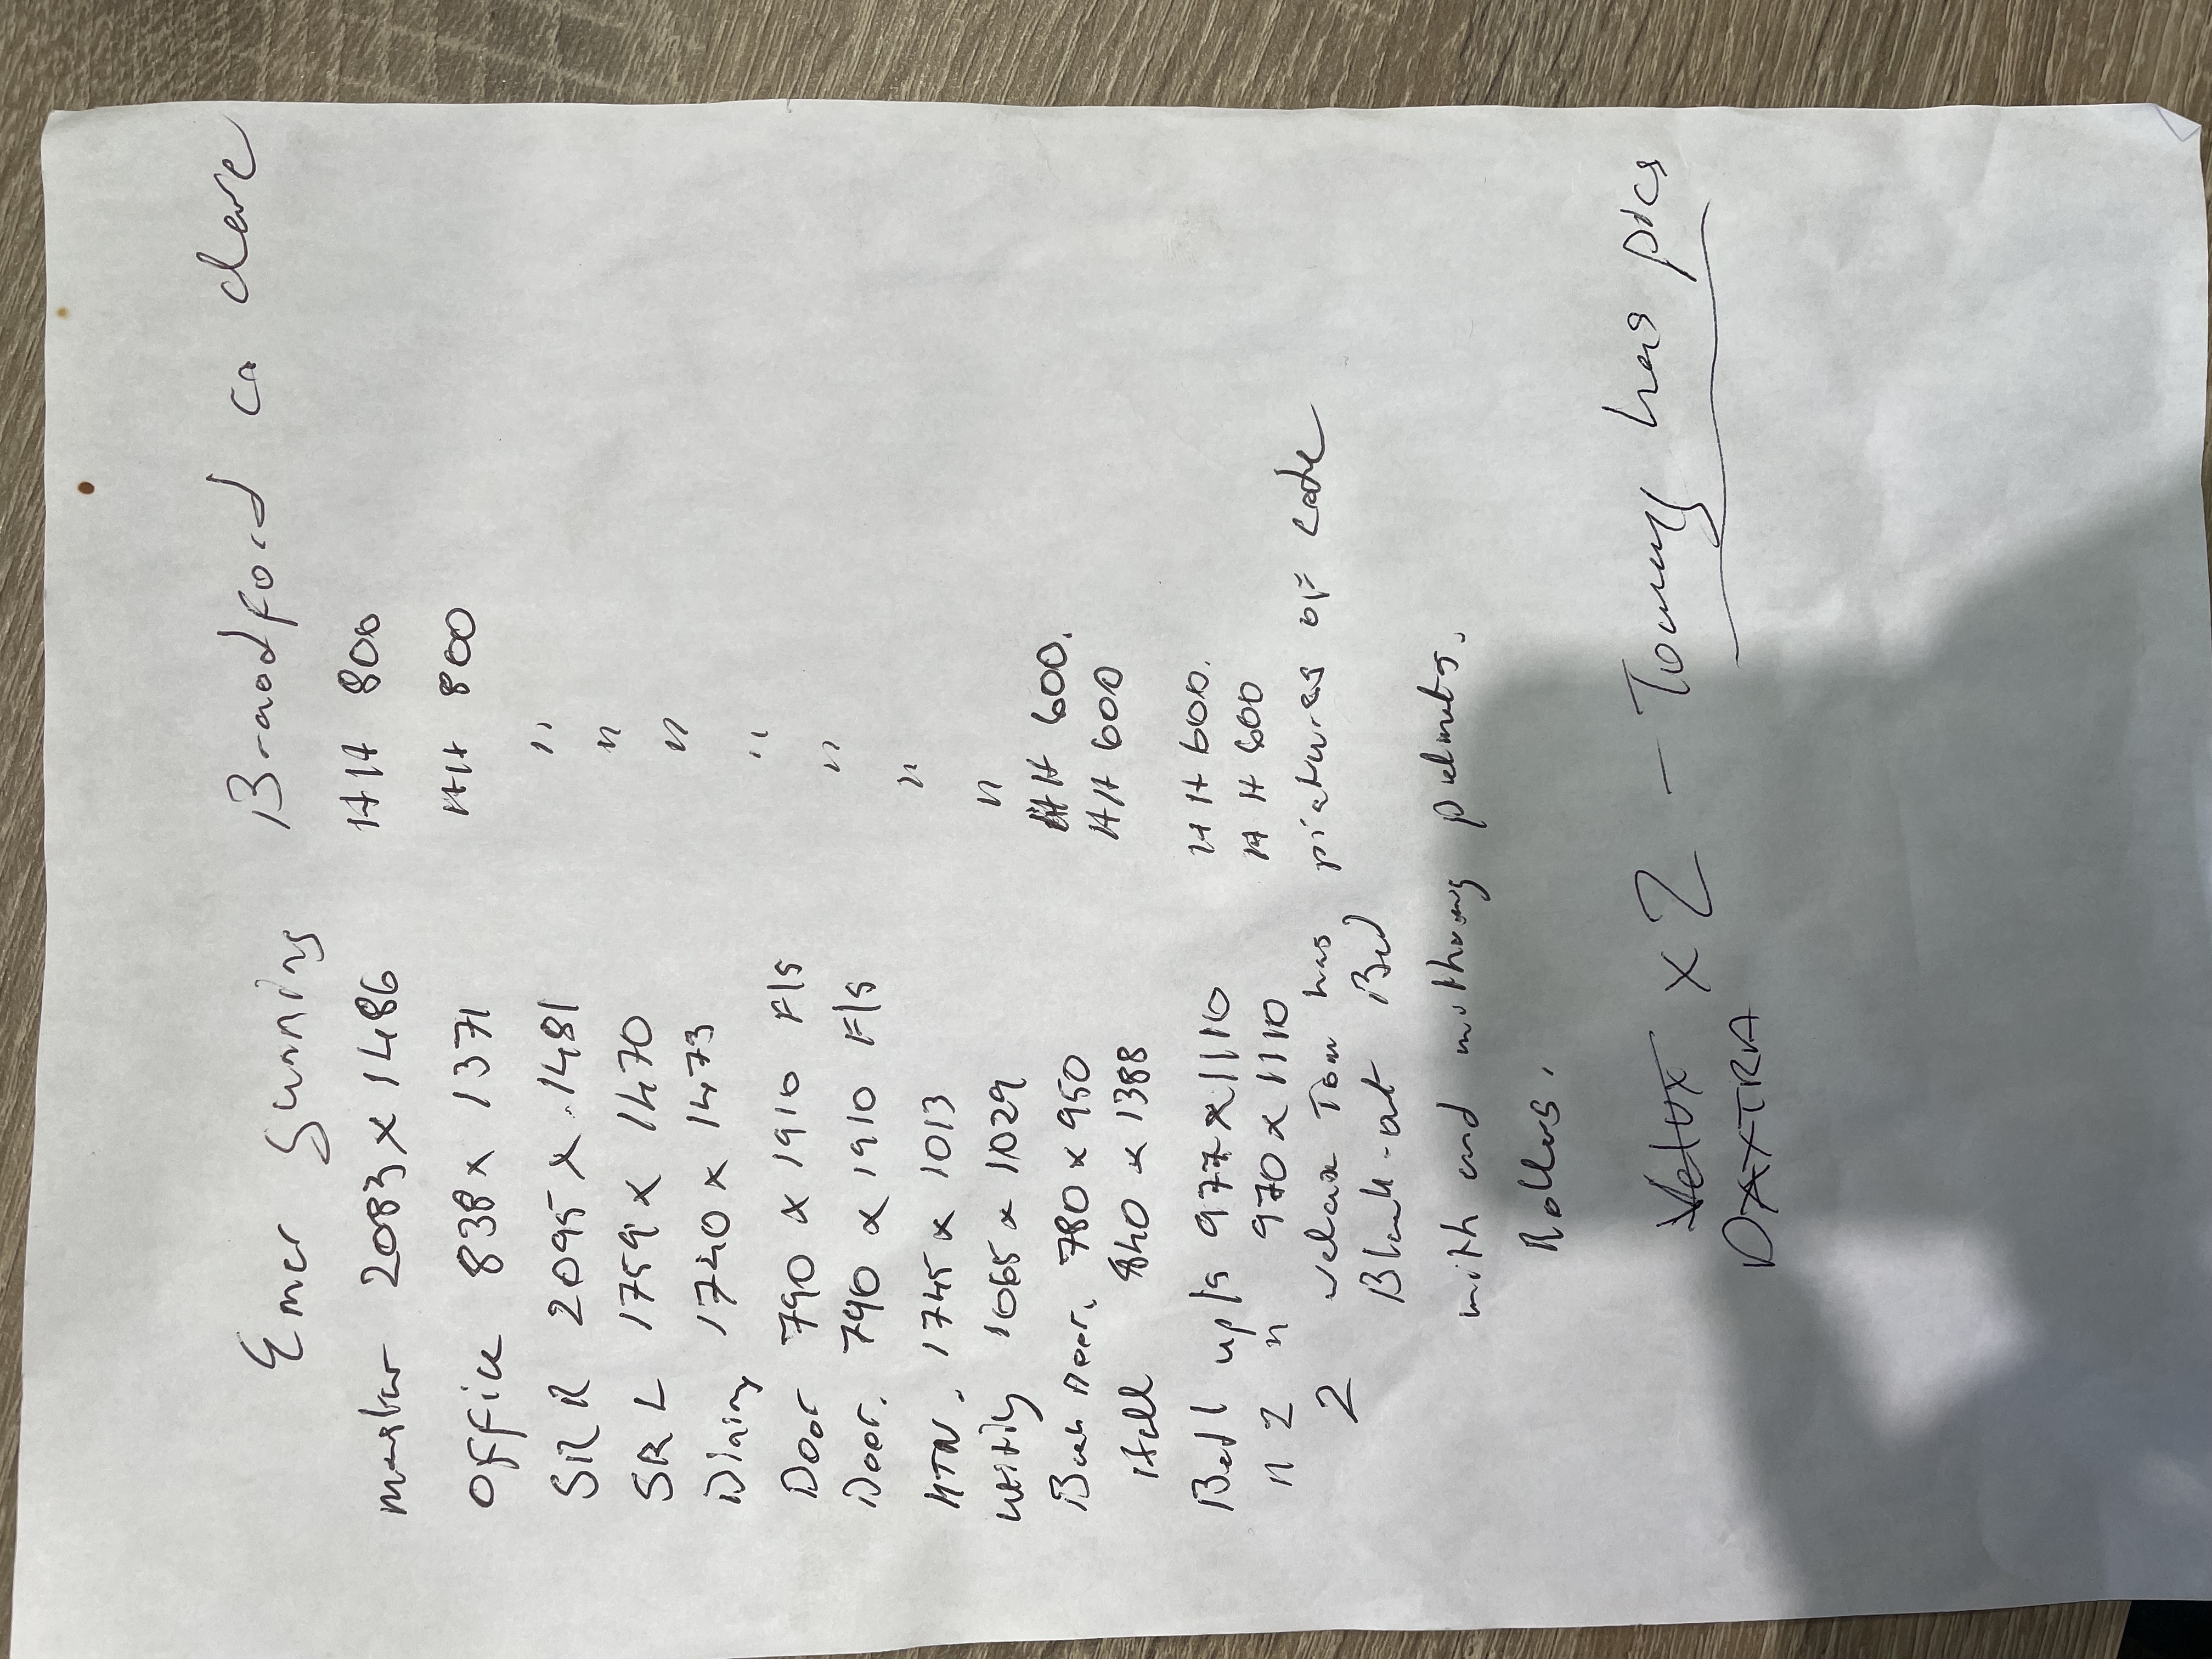 Emer Sunnidys Broadford co clare
Master 2083 x 1486 HH 800
Office 838 x 1371 HH 800
SR R 2095 x 1481 "
SR L 1759 x 1470 "
Dining 1740 x 1473 "
Door 790 x 1910 F/S "
Door. 790 x 1910 F/S "
KTN. 1745 x 1013 "
Utility 1065 x 1029 "
Back Door. 780 x 950 HH 600.
Hall 840 x 1388 HH 600
Bed 1 up/s 977 x 1110 HH 600.
" 2 " 970 x 1110 HH 600
2 velux Tom has pictures of code
Black-out Bed
with and without pelmets.
Rollers.
Velux x 2 - Tommy has pics
DAXTRA